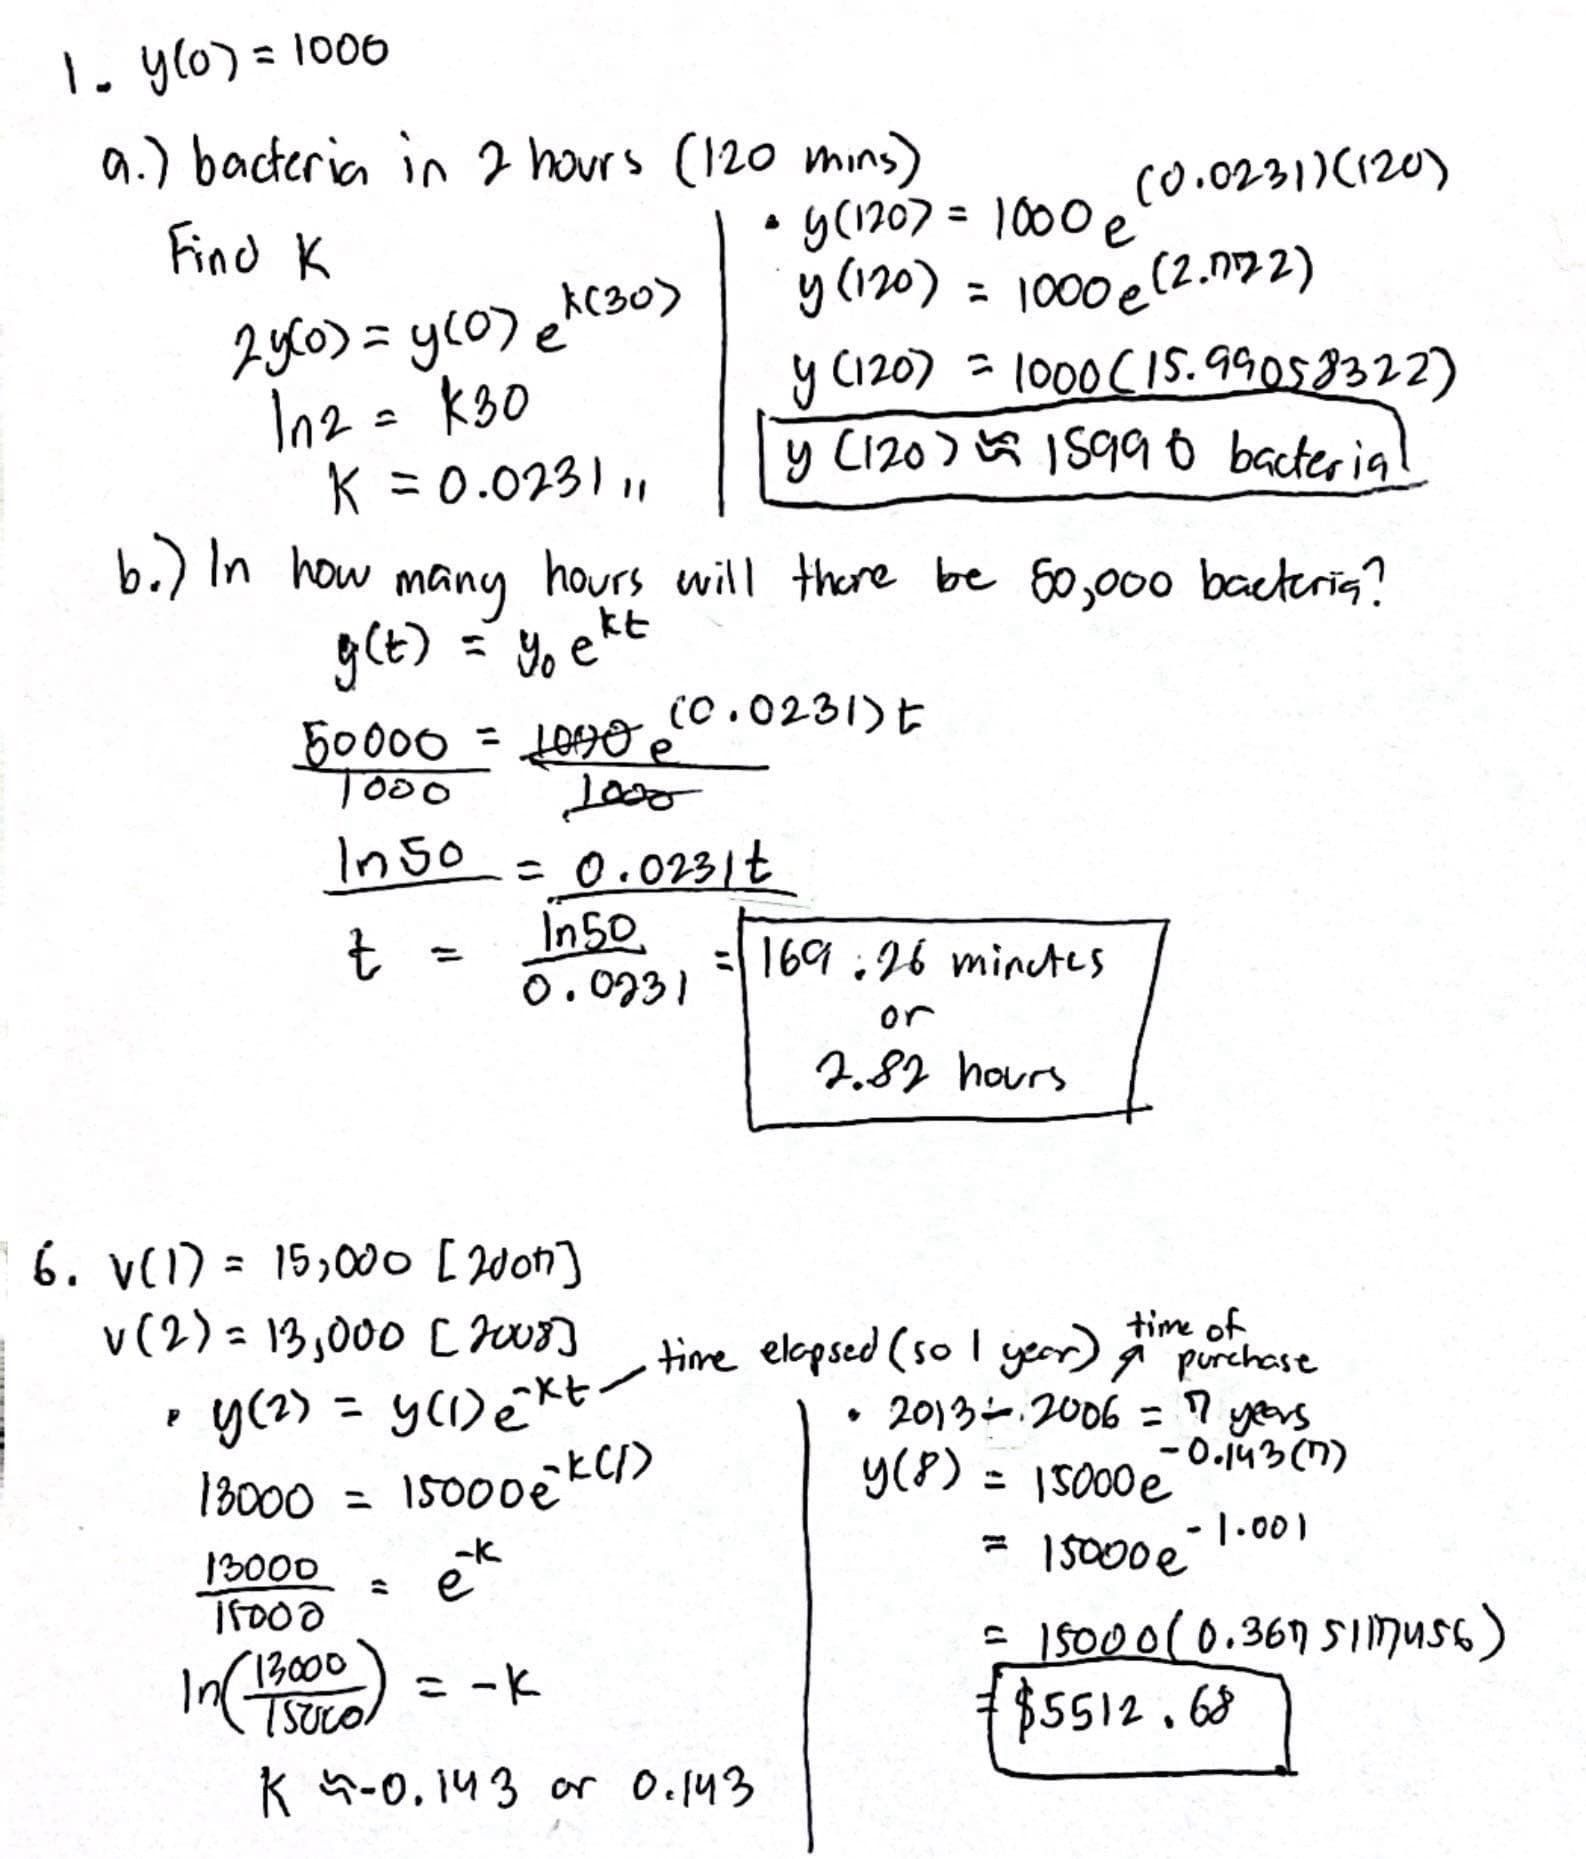 1. y(0) = 1000
a.) bacteria in 2 hours (120 mins)
Find K
2y(0) = y(0) e^k(30)
ln2 = k30
K = 0.0231 ,,
• y(120) = 1000 e^(0.0231)(120)
y(120) = 1000 e^(2.772)
y(120) = 1000 (15.99058322)
y(120) ≈ 15990 bacteria
b.) In how many hours will there be 50,000 bacteria?
y(t) = y₀ e^kt
50000 = 1000 e^(0.0231)t
1000 1000
ln50 = 0.0231t
t = ln50 / 0.0231 = 169.26 minutes
or
2.82 hours
6. v(1) = 15,000 [2007]
v(2) = 13,000 [2008]
time elapsed (so 1 year)
time of purchase
• y(2) = y(1) e^-kt
13000 = 15000 e^-k(1)
13000/15000 = e^-k
ln(13000/15000) = -k
K ≈ -0.143 or 0.143
• 2013 - 2006 = 7 years
y(8) = 15000e^-0.143(7)
= 15000e^-1.001
= 15000(0.3675117456)
= $5512.68